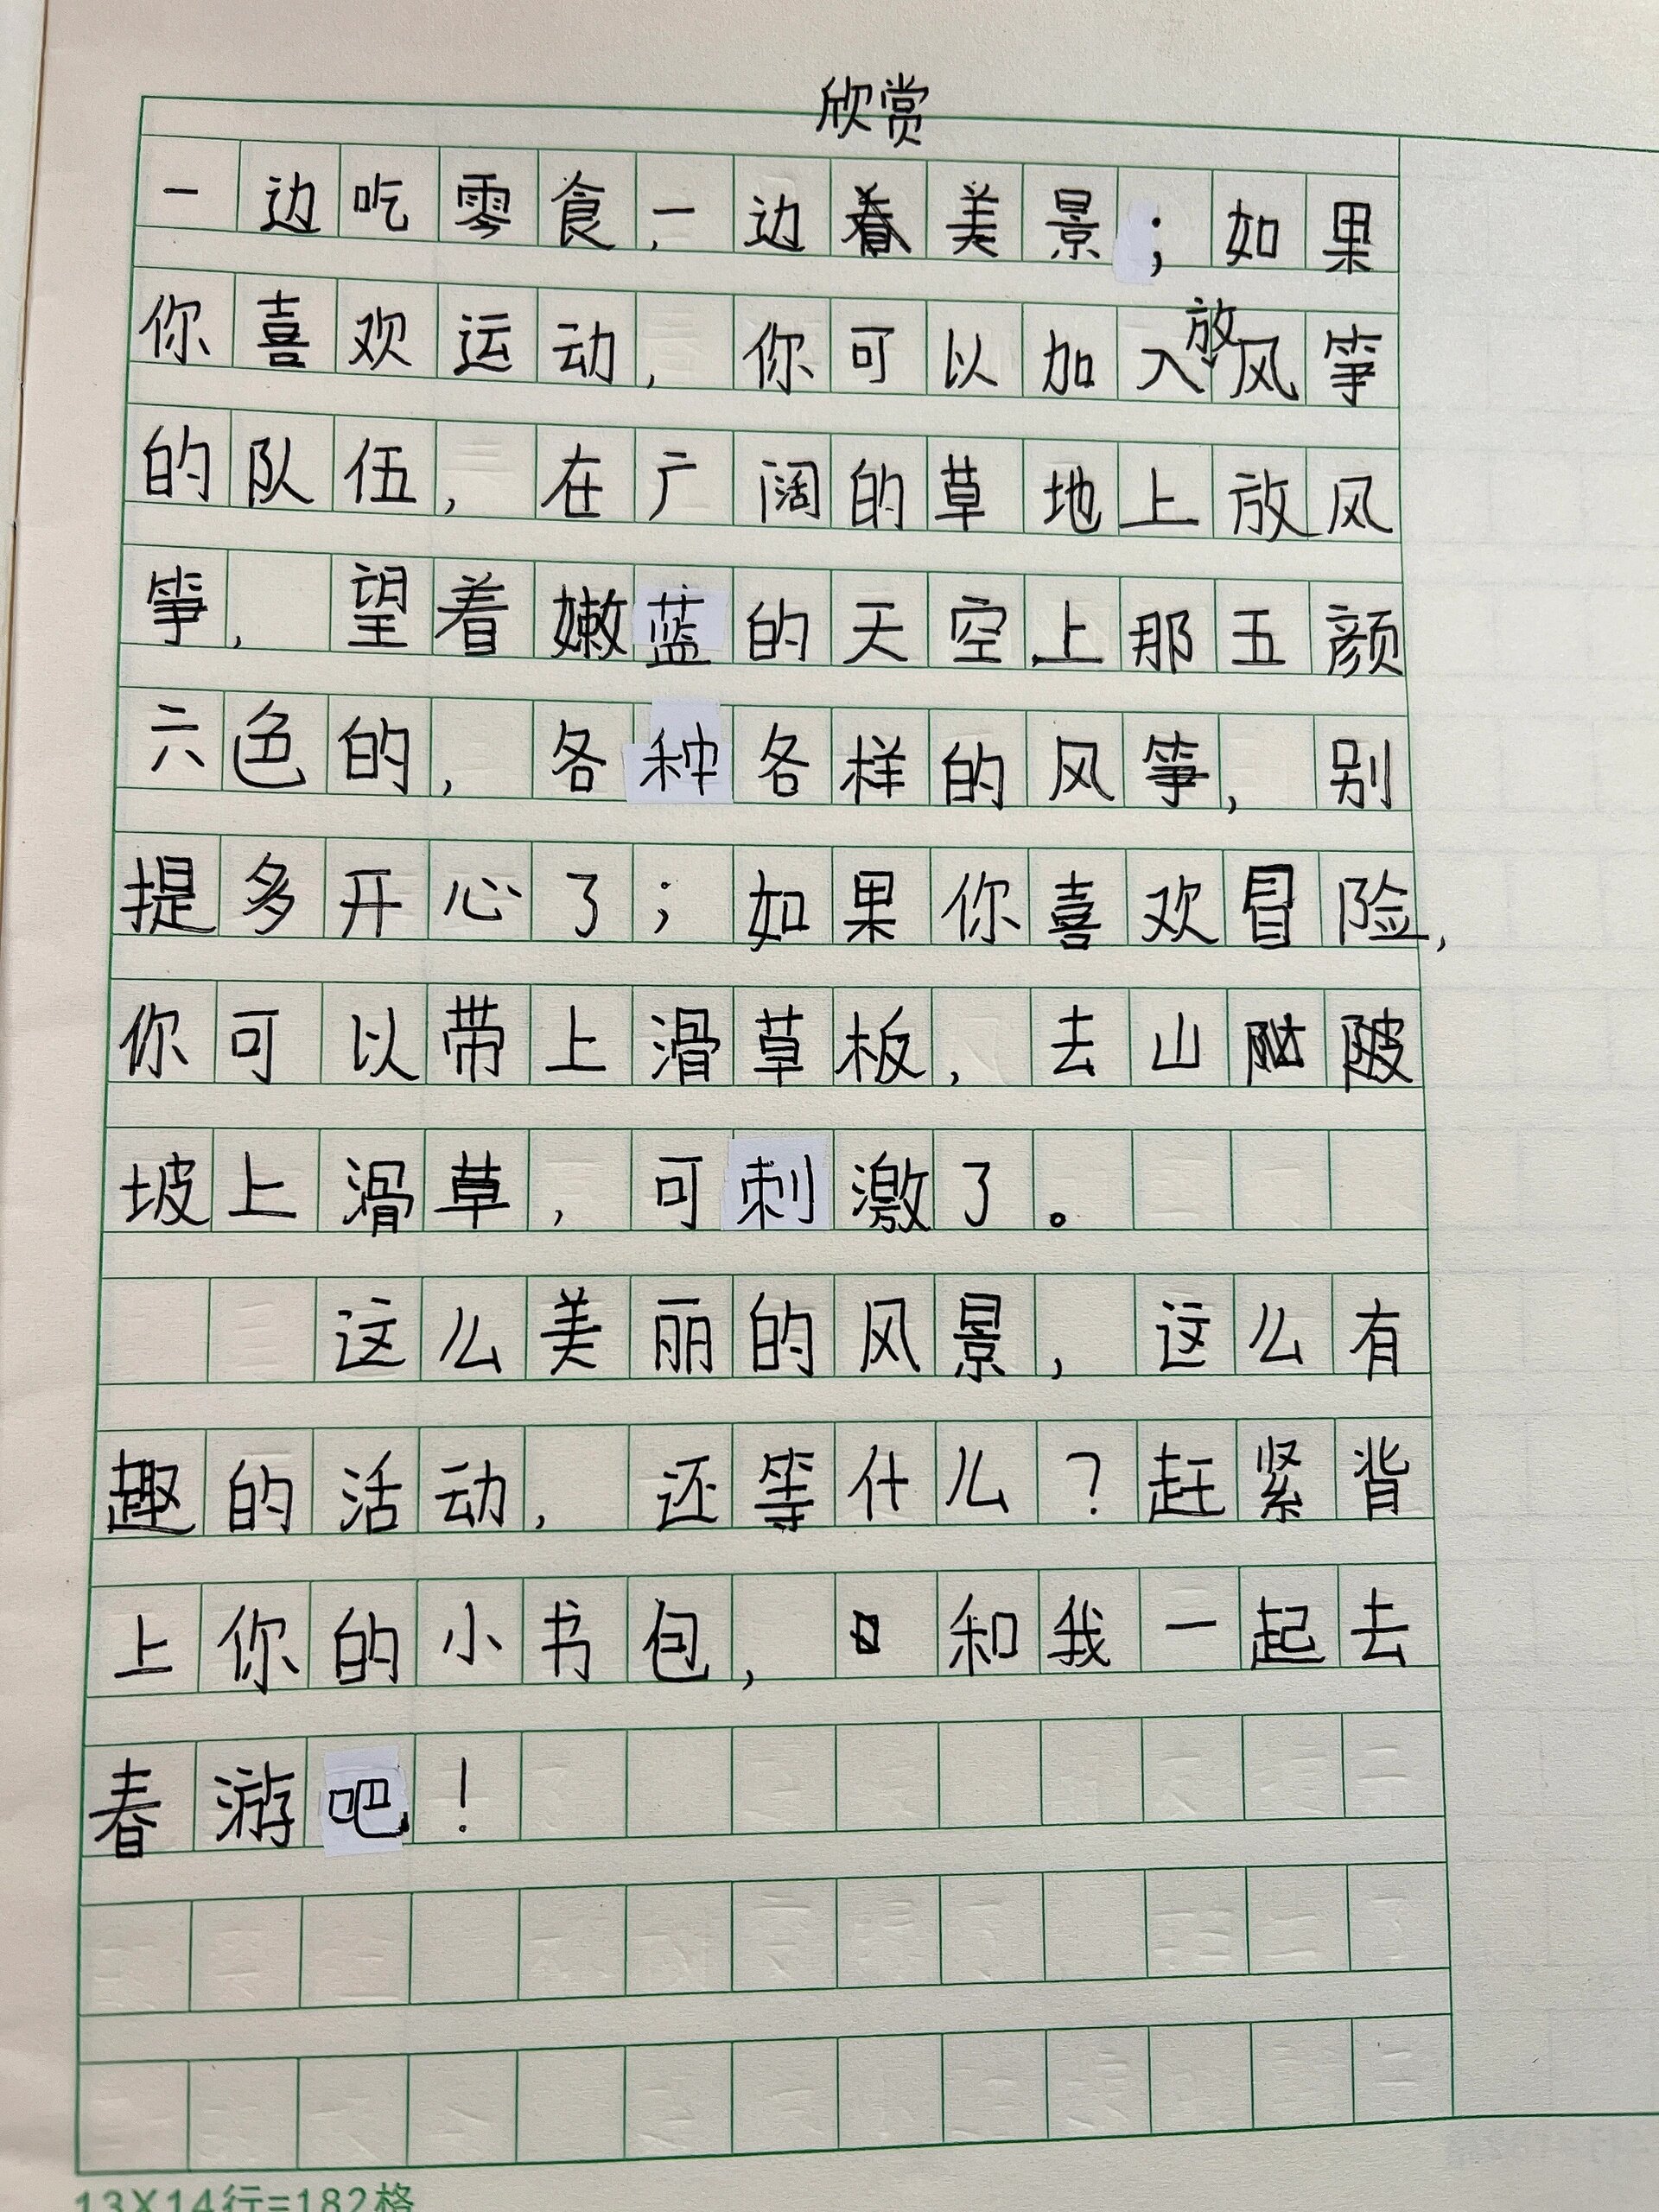 欣赏
一边吃零食，一边看美景；如果
你喜欢运动，你可以加入放风筝
的队伍，在广阔的草地上放风
筝，望着嫩蓝的天空上那五颜
六色的，各种各样的风筝，别
提多开心了；如果你喜欢冒险，
你可以带上滑草板，去山陂
坡上滑草，可刺激了。
这么美丽的风景，这么有
趣的活动，还等什么？赶紧背
上你的小书包，和我一起去
春游吧！
13X14行=182格